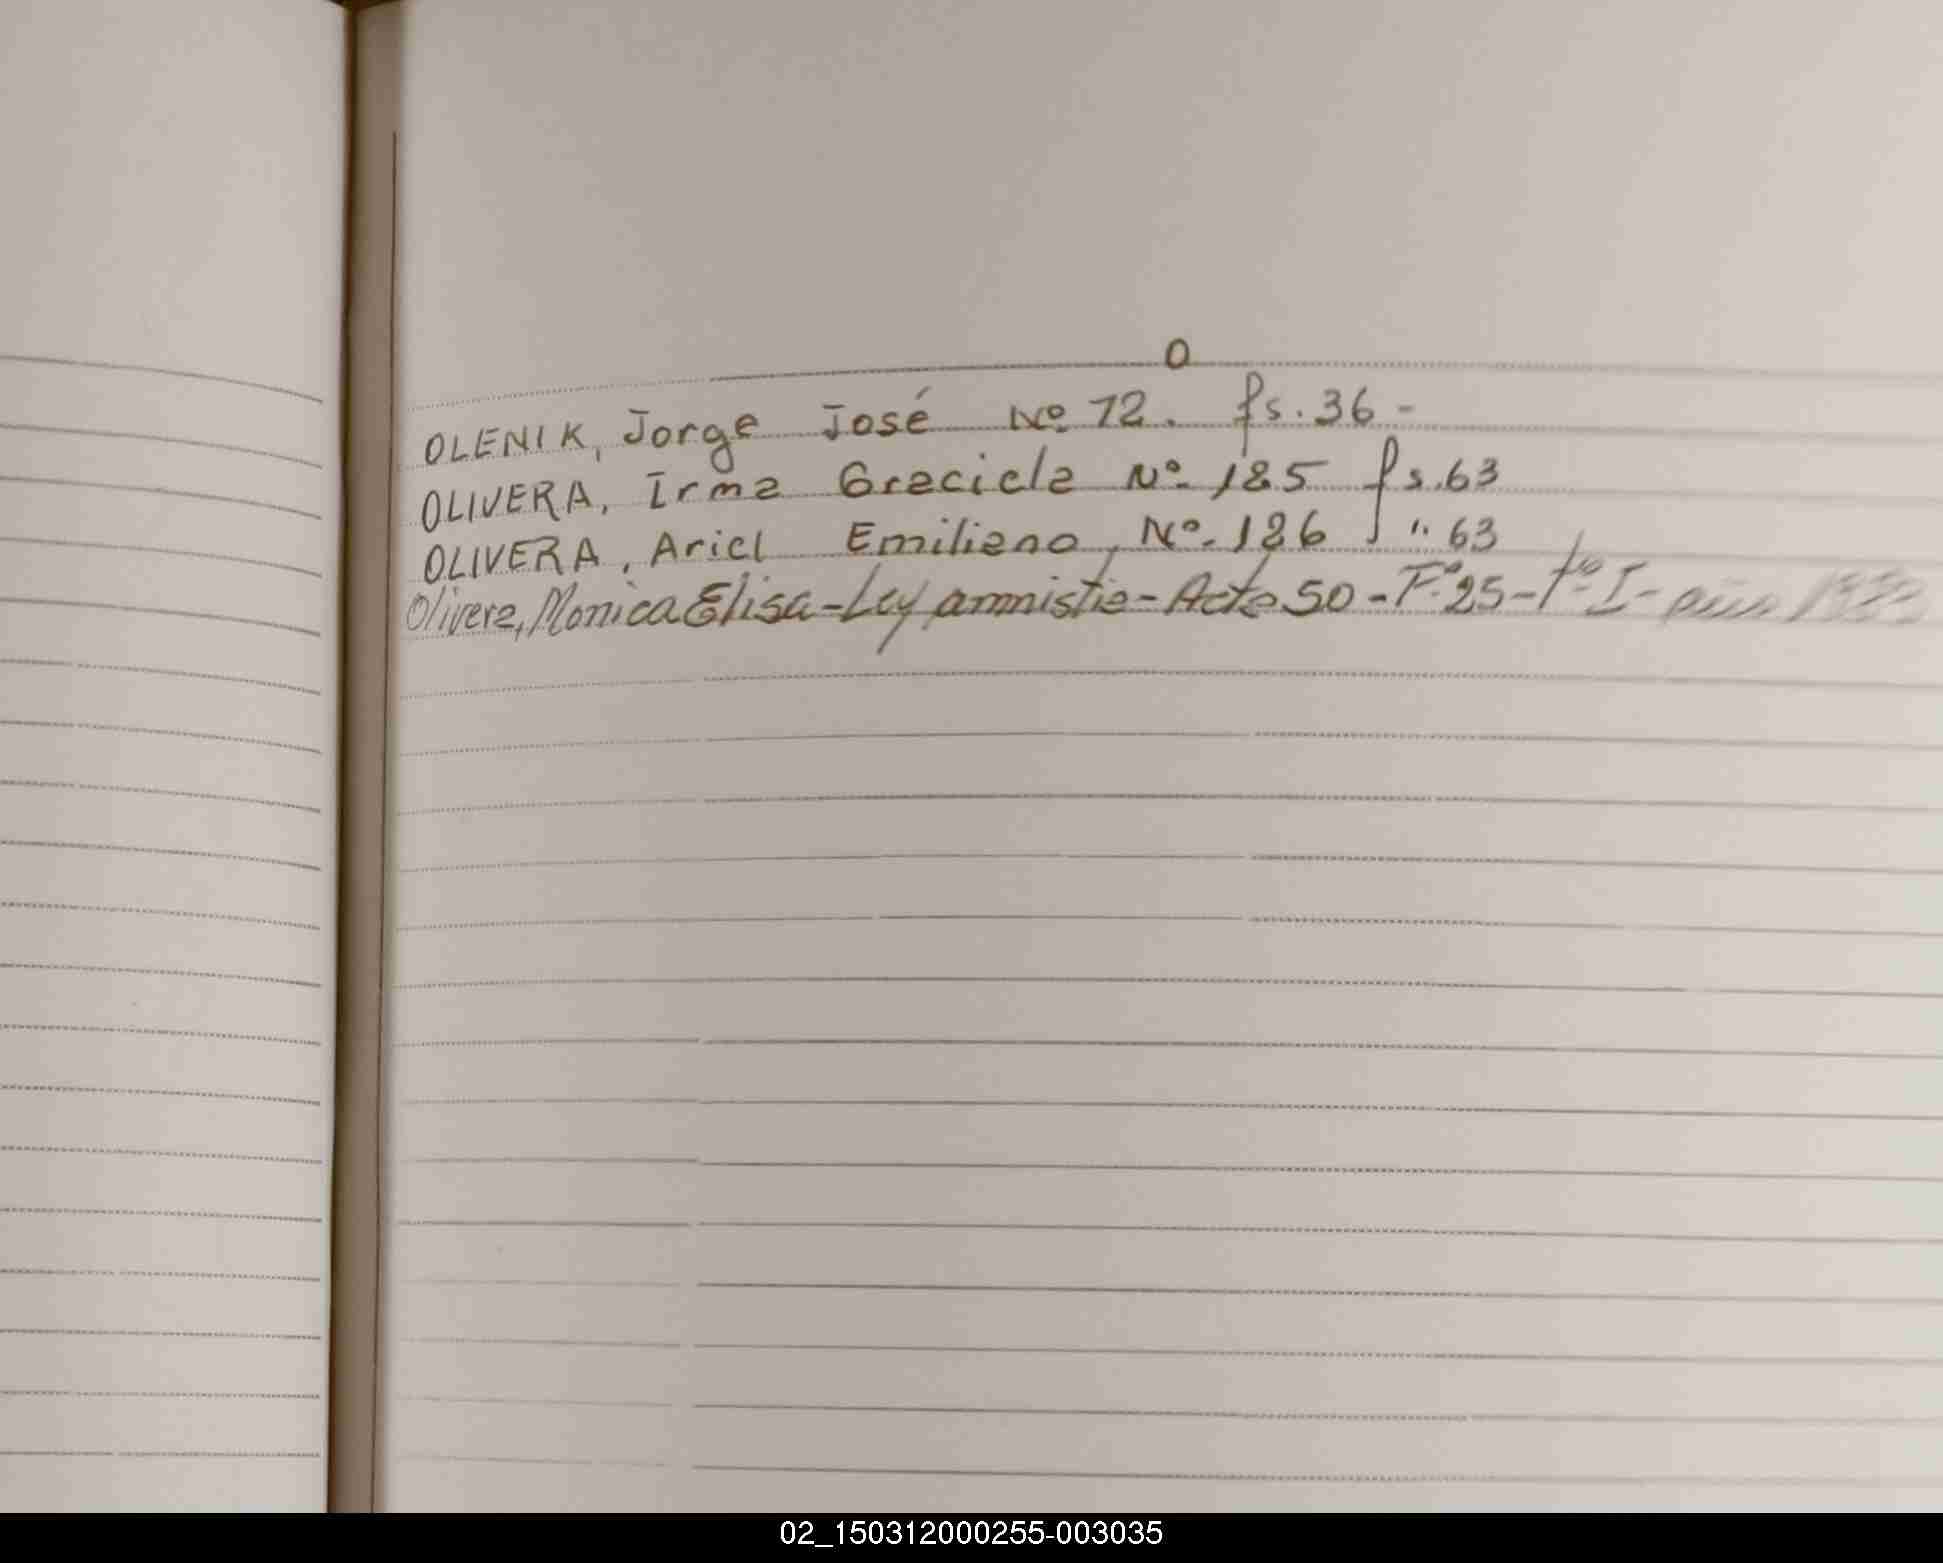 O
OLENIK, Jorge José Nº. 72. fs. 36 -
OLIVERA, Irma Graciela Nº. 185 fs. 63
OLIVERA, Ariel Emiliano, Nº. 186 " 63
Olivera, Monica Elisa - Ley amnistia - Acta 50 - Fº 25 - tº I -
02_150312000255-003035